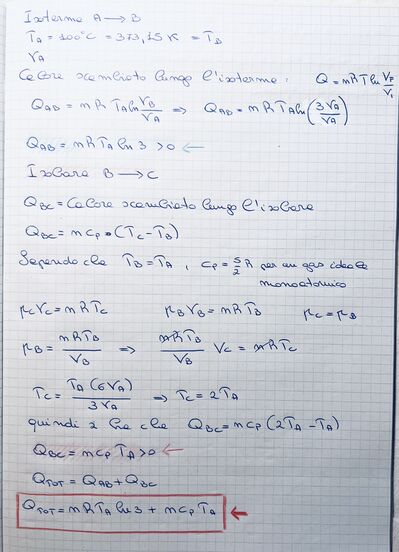 Isoterma A → B
T_A = 100°C = 373,15 K = T_B
V_A
Calore scambiato lungo l'isoterma: Q = nRT ln V_F/V_i
Q_AB = nRT_A ln V_B/V_A ⇒ Q_AB = nRT_A ln(3V_A/V_A)
Q_AB = nRT_A ln 3 > 0 ←
Isobara B → C
Q_BC = Calore scambiato lungo l'isobara
Q_BC = n c_p • (T_C - T_B)
Sapendo che T_B = T_A, c_p = 5/2 R per un gas ideale
monoatomico
p_C V_C = nRT_C p_B V_B = nRT_B p_C = p_B
p_B = nRT_B/V_B ⇒ nRT_B/V_B V_C = nRT_C
T_C = T_A (6V_A)/3V_A ⇒ T_C = 2T_A
quindi si ha che Q_BC = n c_p (2T_A - T_A)
Q_BC = n c_p T_A > 0 ←
Q_TOT = Q_AB + Q_BC
Q_TOT = nRT_A ln 3 + n c_p T_A ←